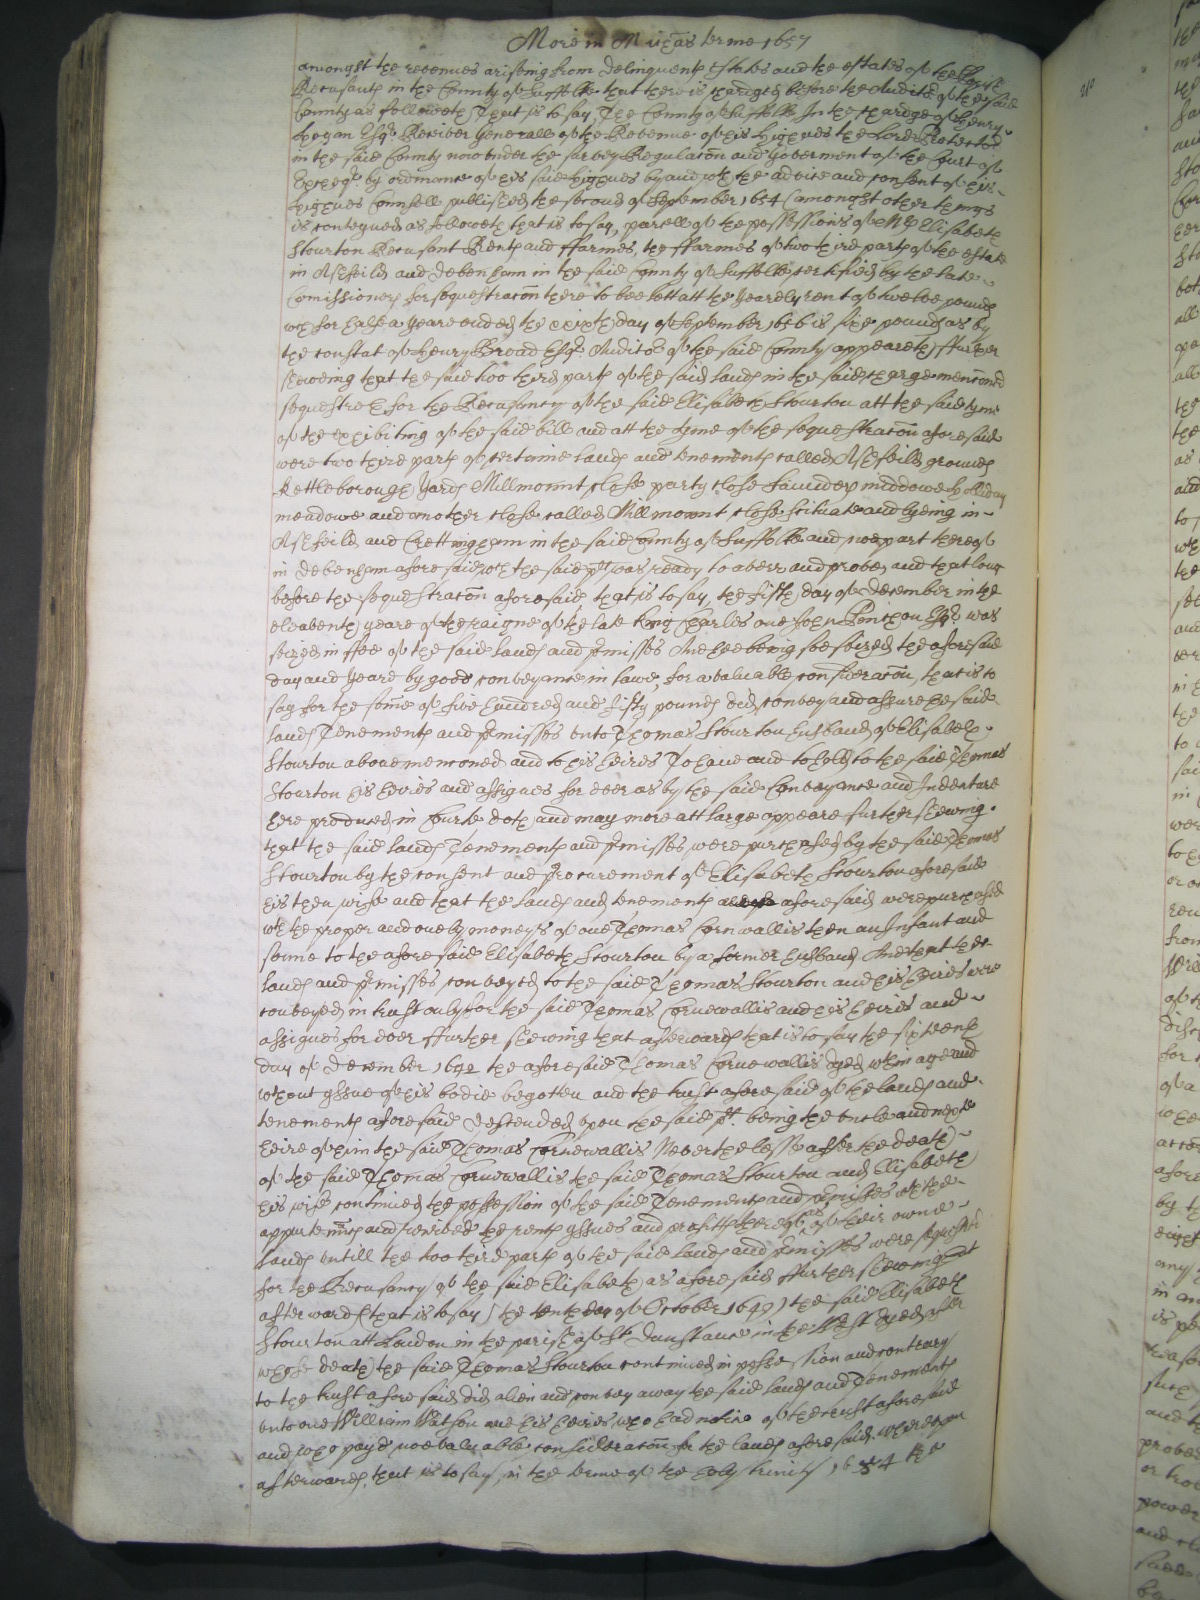 More in Mich̄as terme 1657
amongst the revenues ariseing from delinquents Estates and the estates of the Popish
Recusants in the County of Suffolke that there is chardged before the Auditor of the said
County as followeth That is to say The County of Suffolke In the chardge of Henry
Hogan Esqr Receiver generall of the Revenue of his Highnes the Lord Protector
in the said County now under the survey Regulacōn and Goverment of the Court of
Excheqr by ordinance of his said Highnes by and wth the advice and consent of his
Highnes Counsell published the second of September 1654 amongst other things
is conteyned as followeth that is to say, parcell of the possessions of Elisabeth
Stourton Recusant Rents and ffarmes, the ffarmes of two third parts of the estate
in Ashfeild and Debenham in the said County of Suffolke certified by the late
Comissioners for sequestracōn there to bee lett att the yearely rent of twelve pounds
wch for halfe a yeare ended the xxixth day of September 1656 is sixe pounds as by
the constat of Henry Broad Esqr Auditor of the said County appeareth ffurther
shewing that the said two third parts of the said lands in the said chardge mencōned
sequestred for the Recusancy of the said Elisabeth Stourton att the said tyme
of the exhibiting of the said bill and att the tyme of the sequestracōn aforesaid
were two third parts of certaine lands and tenements called Ashfeild grounds
Kettleborough yards Millmount close party close Saunders middowe Holliday
meadowe and another close called Millmount close scituate and lyeing in
Ashfeild and Crettingham in the said County of Suffolke and noe part thereof
in Debenham aforesaid wch the said plt was ready to aver and prove, and that long
before the sequestracōn aforesaid that is to say the fifth day of December in the
eleaventh yeare of the raigne of the late King Charles one John Pinchon Esqr was
seized in ffee of the said lands and p̄misses And hee being soe seized the aforesaid
day and yeare by good conveyance in lawe, for a valuable consideracōn, that is to
say for the some of five hundred and fifty pounds did convey and assure the said
lands Tenements and p̄misses unto Thomas Stourton husband of Elisabeth
Stourton above mencōned and to his heires To have and to hold to the said Thomas
Stourton his heires and assignes for ever as by the said Conveyance and Indenture
here produced in Courte doth and may more att large appeare further shewing
that the said lands Tenements and p̄misses were purchased by the said Thomas
Stourton by the consent and procurement of Elisabeth Stourton aforesaid
his then wife and that the lands and tenements aforesaid were purchased
wth the proper and onely moneys of one Thomas Cornwallis then an Infant and
sonne to the aforesaid Elisabeth Stourton by a former husband And that the
lands and p̄misses conveyed to the said Thomas Stourton and his heires were
conveyed in trust only for the said Thomas Cornewallis and his heires and
assignes for ever ffurther shewing that afterwards that is to say the sixteenth
day of December 1642 the aforesaid Thomas Cornewallis dyed wthin age and
wthout yssue of his bodie begotten and the trust aforesaid of the lands and
tenements aforesaid descended upon the said plt being the uncle and next
heire of him the said Thomas Cornewallis Neverthelesse after the death
of the said Thomas Cornewallis the said Thomas Stourton and Elisabeth
his wife continued the possession of the said Tenements and p̄misses wth the
appurtenn̄cs and received the rents yssues and profitts thereof as of their owne
lands untill the two third parts of the said lands and p̄misses were sequestred
for the Recusancy of the said Elisabeth as aforesaid ffurther shewing that
afterwards (that is to say) the tenth day of October 1649) the said Elisabeth
Stourton att London in the parish of St Dunstans in the West dyed after
whose death the said Thomas Stourton continued in possession and contrary
to the trust aforesaid did alien and convey away the said lands and Tenements
unto one William Watson and his heires who had notice of the trust aforesaid
and who payd noe valuable consideracōn for the lands aforesaid whereupon
afterwards that is to say in the terme of the holy trinity 1654 the